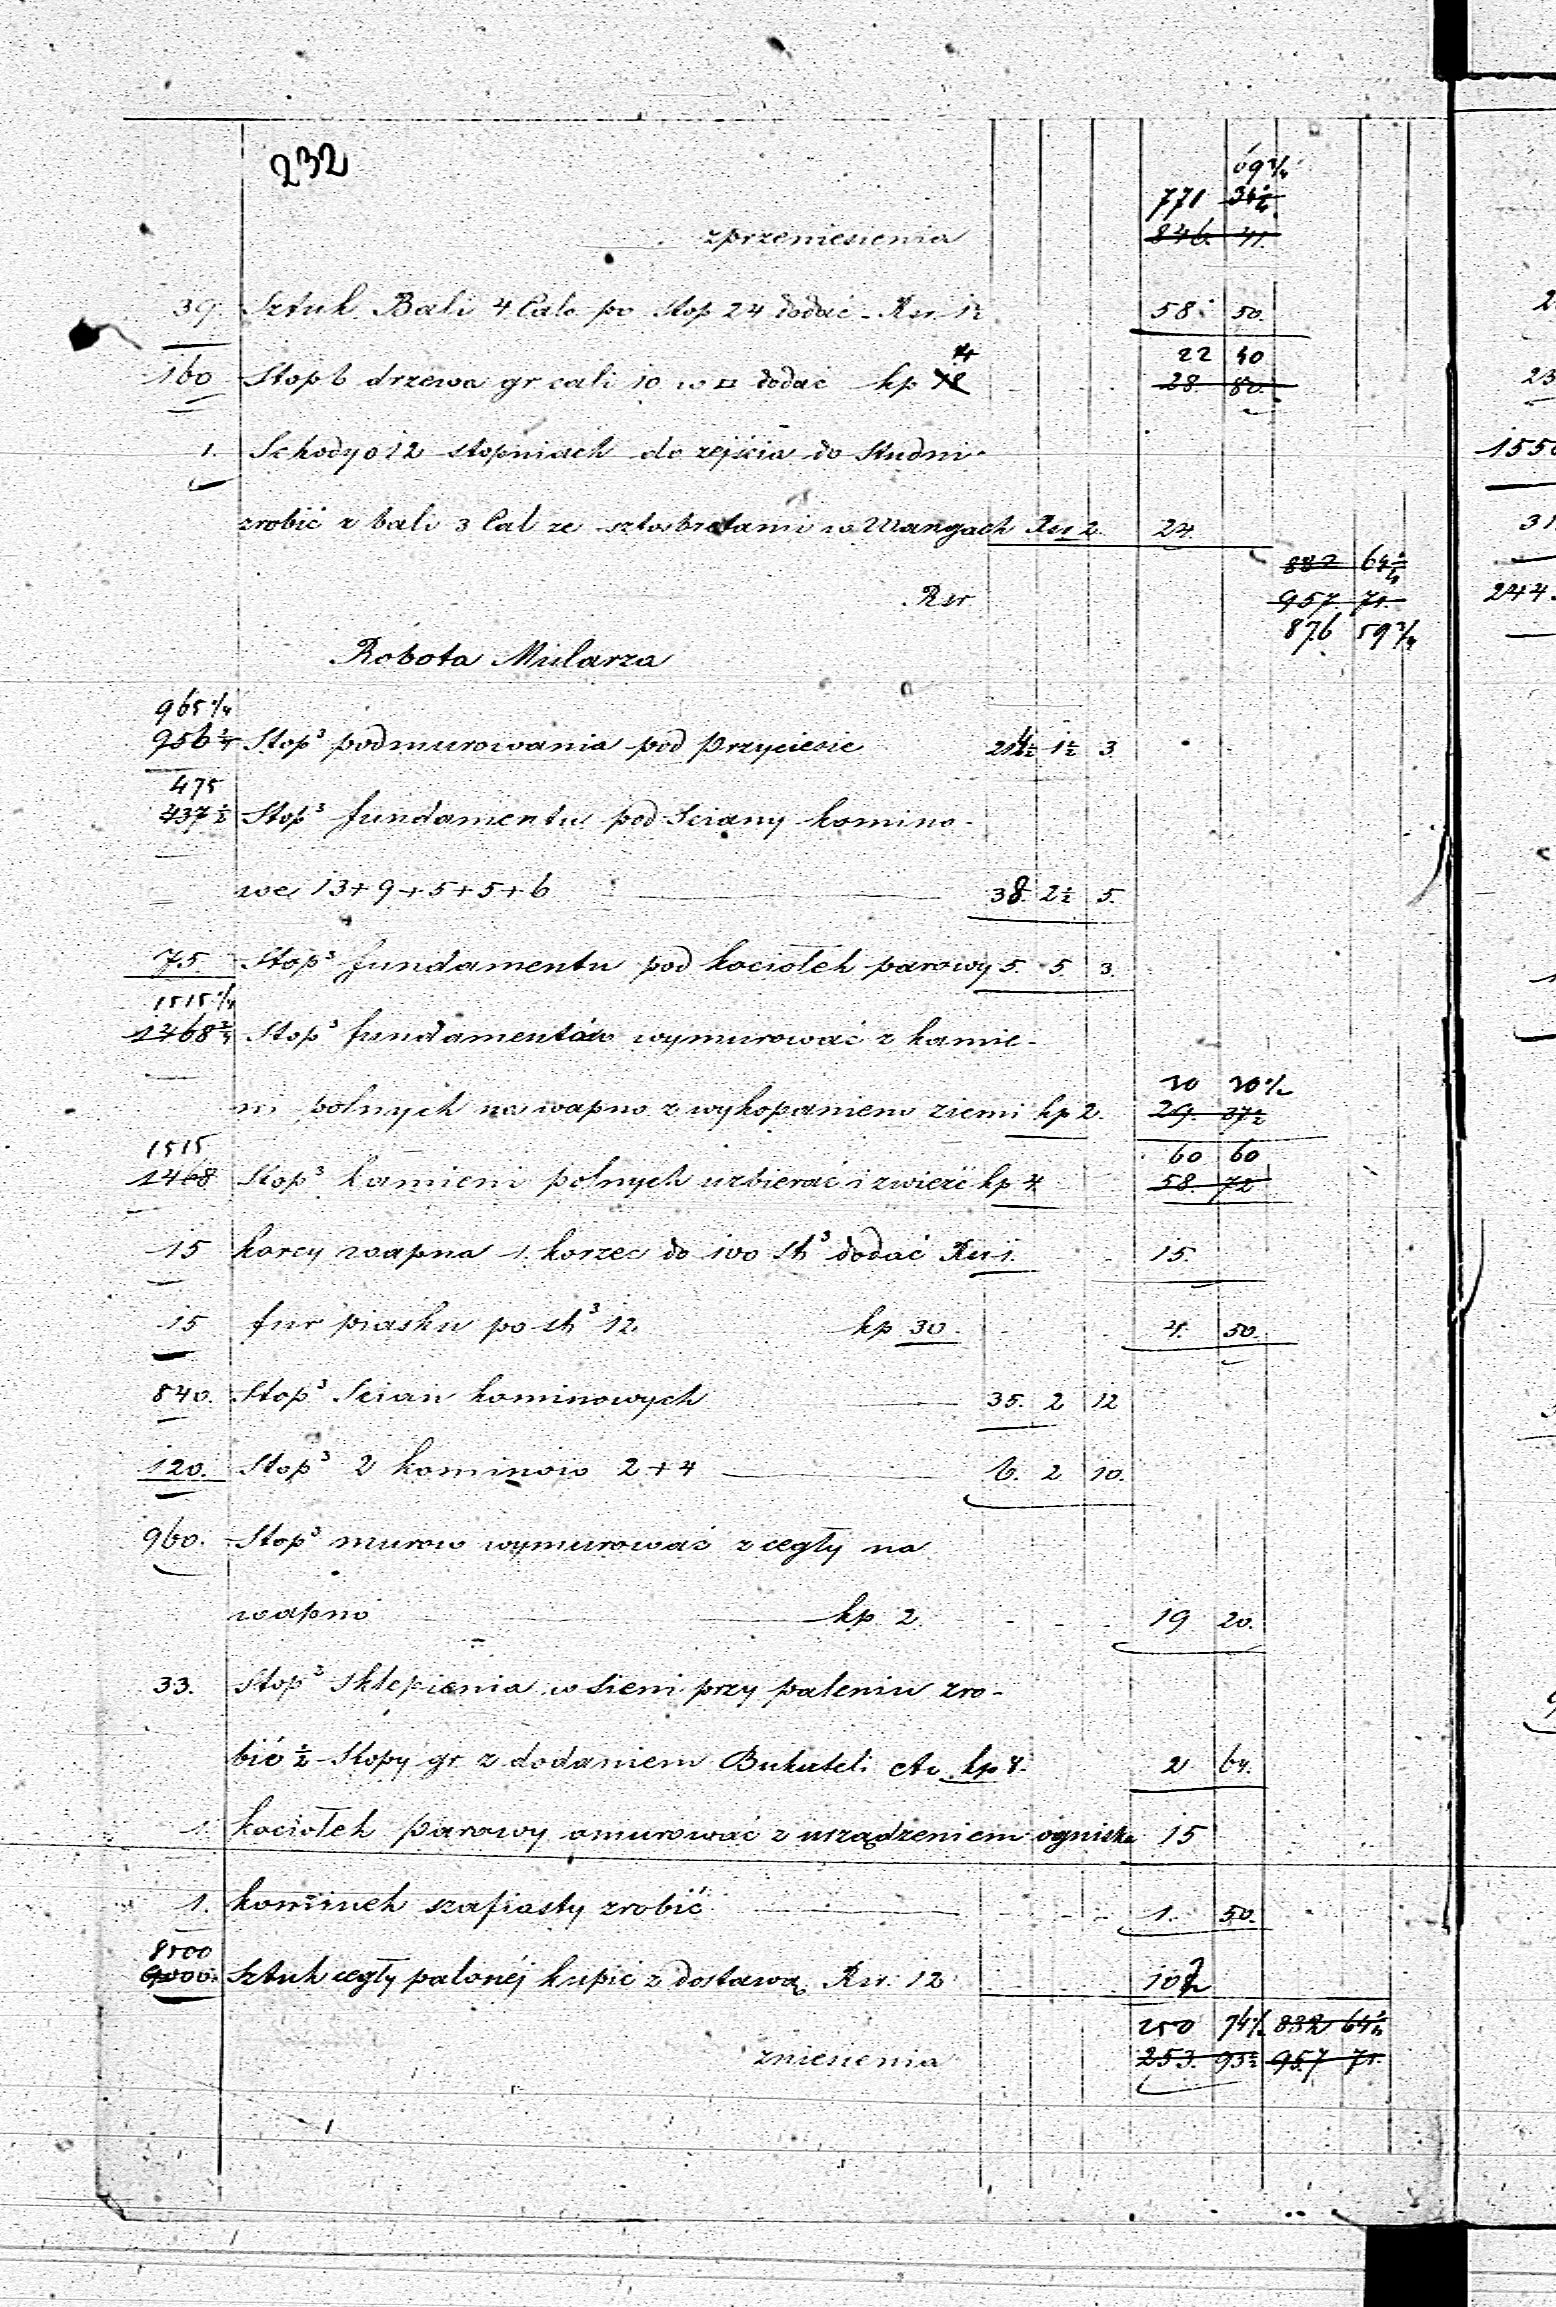 232
69 3/4
771 34 1/4
zprzeniesienia 846. 41.
39. Sztuk Bali 4 Calo po Stop 24 dodać - Rsr. 1½ 58. 50.
14 22 40
160 Stop b drzewa gr cali 10 w □ dodać kp 18 28 80.
1. Schody o 12 stopniach do zejścia do Studni
zrobić z bali 3 Cal ze sztosbretami w Wangach Rsr 2. 24.
882 64 1/4
Rsr 957 71.
876 59 3/4
Robota Mularza
965 1/4
956 1/4 Stop³ podmurowania pod Przyciesie 214½ 1½ 3
475
437½ Stop³ fundamentu pod Sciany komino-
we 13+9+5+5+6 38. 2½ 5.
75. Stop³ fundamentu pod kociołek parowy 5. 5. 3.
1515 1/4
1468 3/4 Stop³ fundamentów wymurować z kamie-
30 30½
ni polnych na wapno z wykopaniem ziemi kp 2. 29. 37½
1515 60 60
1468 Stop³ kamieni polnych uzbierać i zwieźć kp 4. 58. 72
15 korcy wapna 1. korzec do 100 St³ dodać Rsr 1. 15.
15 fur piasku po st³ 12. kp 30. 4. 50.
840. Stop³ Scian kominowych 35. 2 12
120. Stop³ 2 kominow 2+4 6. 2 10.
960. Stop³ murow wymurować z cegły na
wapno kp. 2. 19 20.
33. Stop² sklepienia w sieni przy paleniu zro-
bić ½ Stopy gr z dodaniem Buksteli etc kp 8. 2 64.
1. kociołek parowy omurować z urządzeniem ogniska 15
1. kominek szafiasty zrobić 1. 50.
8500
9000. Sztuk cegły palonéj kupić z dostawą Rsr. 12 102
250 94½ 882 64 1/4
zniesienia 253. 93½ 957 71.